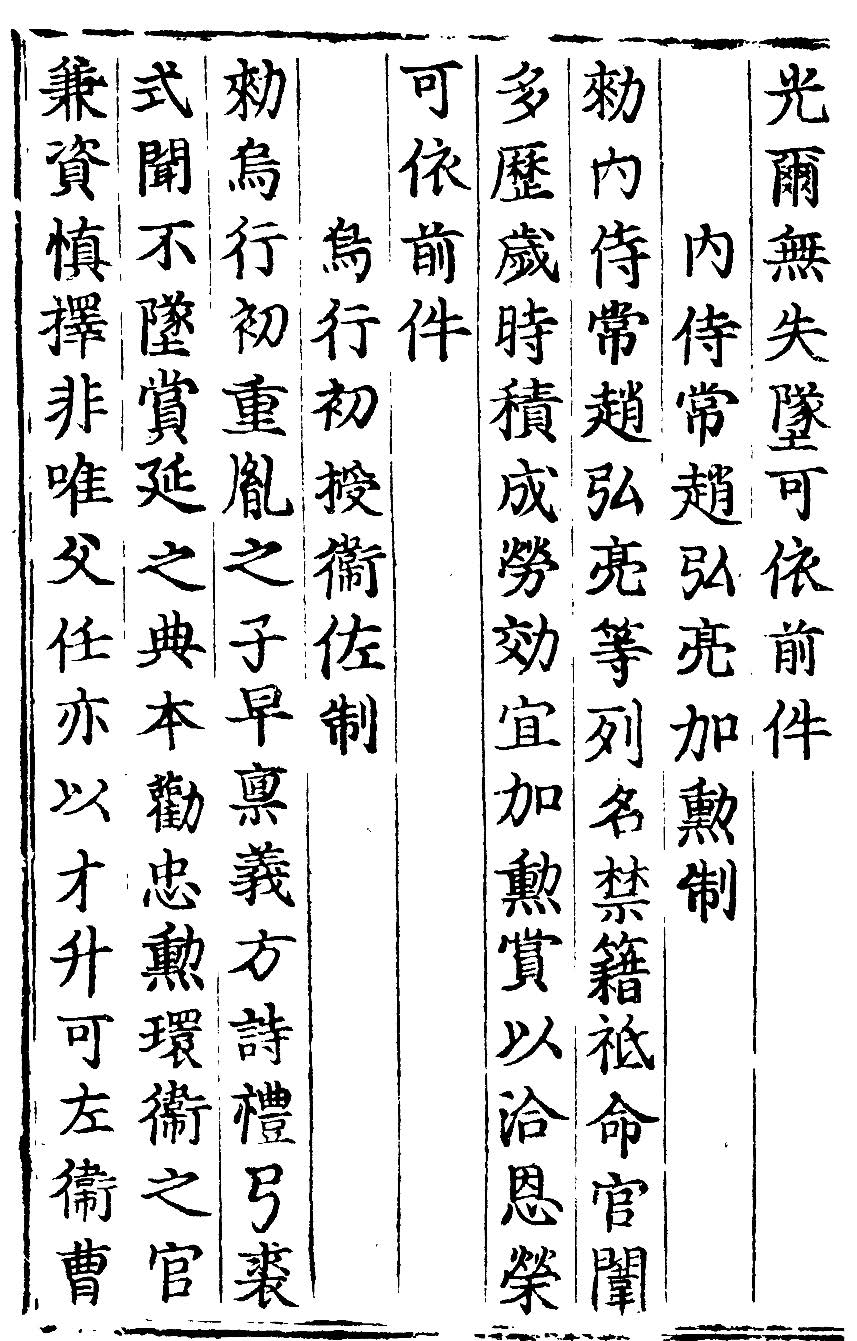 光爾無失墜可依前件
内侍常趙弘亮加勲制
勑内侍常趙弘亮等列名禁籍祗命官闈
多歷歲時積成勞効宜加勲賞以洽恩榮
可依前件
烏行初授衞佐制
勑烏行初重胤之子早禀義方詩禮弓裘
式聞不墜賞延之典本勸忠勲環衞之官
兼資慎擇非唯父任亦以才升可左衞曹